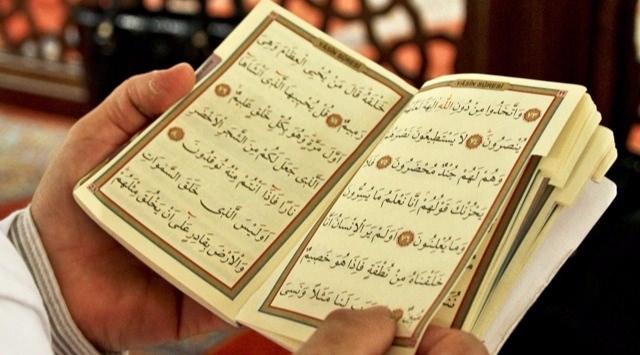 YÂSÎN SÛRESİ
وَاتَّخَذُوا مِنْ دُونِ اللّٰهِ اٰلِهَةً
يُنْصَرُونَ ﴿٧٤﴾ لَا يَسْتَطِيعُونَ نَصْرَهُمْ
وَهُمْ لَهُمْ جُنْدٌ مُحْضَرُونَ ﴿٧٥﴾ فَلَا
يَحْزُنْكَ قَوْلُهُمْ اِنَّا نَعْلَمُ مَا يُسِرُّونَ
وَمَا يُعْلِنُونَ ﴿٧٦﴾ اَوَلَمْ يَرَ الْاِنْسَانُ اَنَّا
خَلَقْنَاهُ مِنْ نُطْفَةٍ فَاِذَا هُوَ خَصِيمٌ
مُبِينٌ لَنَا مَثَلًا وَنَسِيَ
YÂSÎN SÛRESİ
خَلْقَهُ قَالَ مَنْ يُحْيِي الْعِظَامَ وَهِيَ
رَمِيمٌ ﴿٧٨﴾ قُلْ يُحْيِيهَا الَّذِي اَنْشَاَهَا
اَوَّلَ مَرَّةٍ وَهُوَ بِكُلِّ خَلْقٍ عَلِيمٌ ﴿٧٩﴾
اَلَّذِي جَعَلَ لَكُمْ مِنَ الشَّجَرِ الْاَخْضَرِ
نَارًا فَاِذَا اَنْتُمْ مِنْهُ تُوقِدُونَ ﴿٨٠﴾
اَوَلَيْسَ الَّذِي خَلَقَ السَّمٰوَاتِ
وَالْاَرْضَ بِقَادِرٍ عَلٰى اَنْ يَخْلُقَ مِثْلَهُمْ